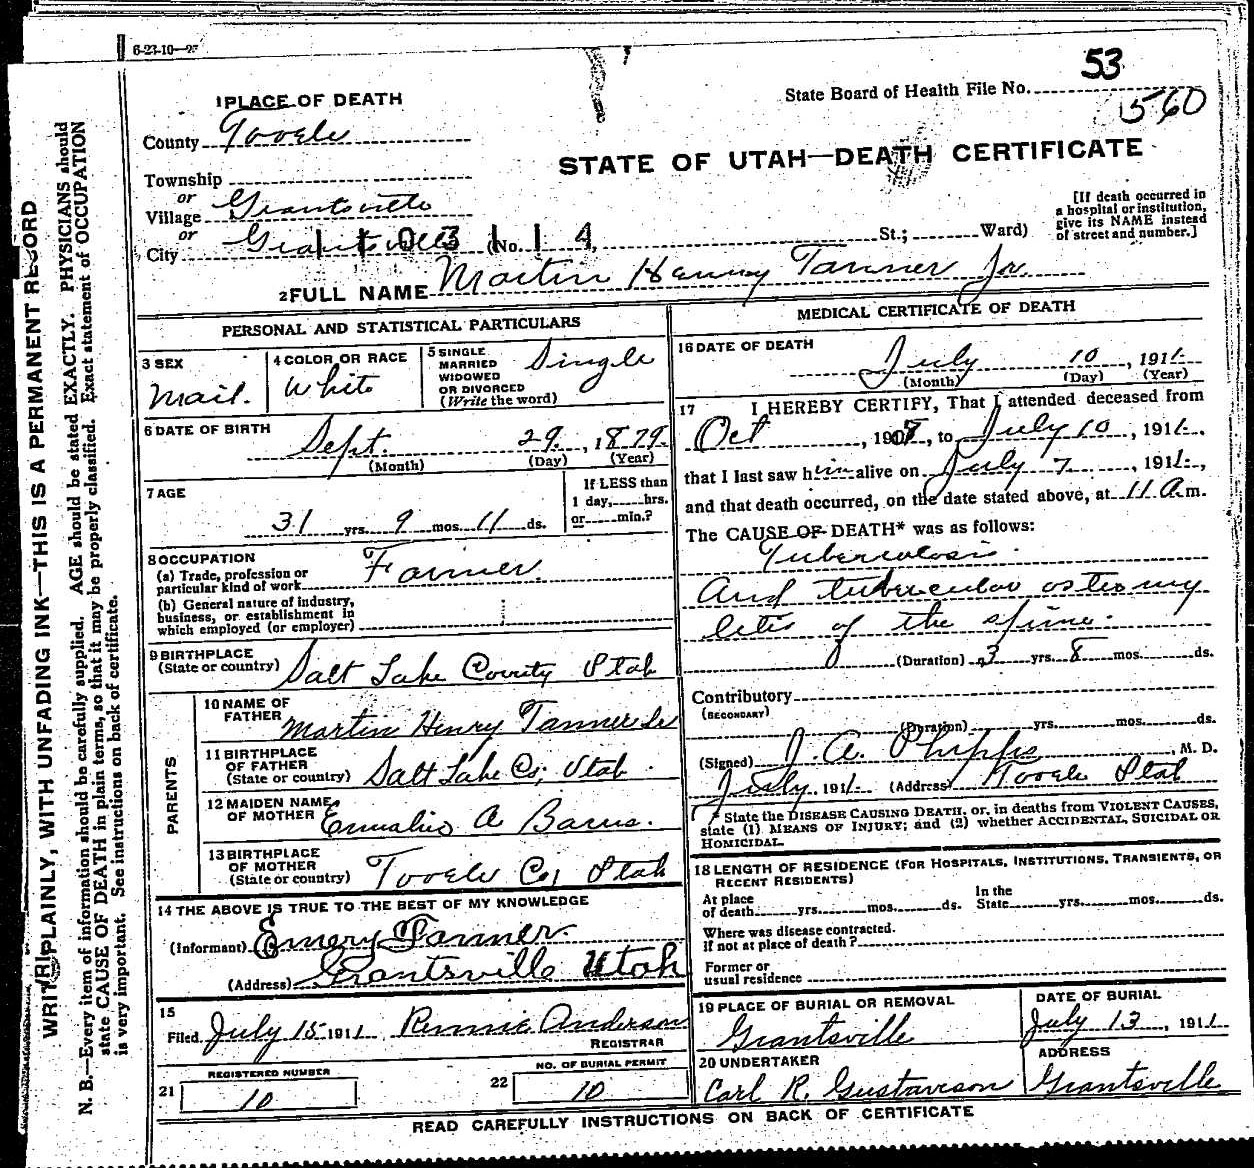 6-23-10—
53
State Board of Health File No.
560
1 PLACE OF DEATH
County Tooele
STATE OF UTAH—DEATH CERTIFICATE
Township
or
Village Grantsville
or
City Grantsville (No. St.; Ward)
1 1 0 3 1 1 4
[If death occurred in
a hospital or institution,
give its NAME instead
of street and number.]
2 FULL NAME Martin Henry Tanner Jr.
PERSONAL AND STATISTICAL PARTICULARS
3 SEX
Mail.
4 COLOR OR RACE
White
5 SINGLE
MARRIED
WIDOWED
OR DIVORCED
(Write the word)
Single
6 DATE OF BIRTH
Sept. 29, 1879.
(Month) (Day) (Year)
7 AGE
31 yrs. 9 mos. 11 ds.
If LESS than
1 day, hrs.
or min.?
8 OCCUPATION
(a) Trade, profession or
particular kind of work Farmer.
(b) General nature of industry,
business, or establishment in
which employed (or employer)
9 BIRTHPLACE
(State or country) Salt Lake County Utah
PARENTS
10 NAME OF
FATHER Martin Henry Tanner Sr
11 BIRTHPLACE
OF FATHER
(State or country) Salt Lake Co; Utah.
12 MAIDEN NAME
OF MOTHER A
13 BIRTHPLACE
OF MOTHER
(State or country) Tooele Co, Utah
14 THE ABOVE IS TRUE TO THE BEST OF MY KNOWLEDGE
(Informant) Emery Tanner
(Address) Grantsville Utah
15
Filed July 15 1911 Anderson
REGISTRAR
21 REGISTERED NUMBER
10
22 NO. OF BURIAL PERMIT
10
MEDICAL CERTIFICATE OF DEATH
16 DATE OF DEATH
July 10, 1911.
(Month) (Day) (Year)
17 I HEREBY CERTIFY, That I attended deceased from
Oct, 1907, to July 10, 1911.,
that I last saw him alive on July 7, 1911.,
and that death occurred, on the date stated above, at 11 A.m.
The CAUSE OF DEATH* was as follows:
Tuberculosis.
And tubercular osteomy
letis of the spine.
(Duration) 3 yrs. 8 mos. ds.
Contributory
(SECONDARY)
(Duration) yrs. mos. ds.
(Signed) J. A. Phipps, M. D.
July, 1911. (Address) Tooele Utah
* State the DISEASE CAUSING DEATH, or, in deaths from VIOLENT CAUSES,
state (1) MEANS OF INJURY; and (2) whether ACCIDENTAL, SUICIDAL OR
HOMICIDAL.
18 LENGTH OF RESIDENCE (FOR HOSPITALS, INSTITUTIONS, TRANSIENTS, OR
RECENT RESIDENTS)
At place
of death yrs. mos. ds.
In the
State yrs. mos. ds.
Where was disease contracted.
If not at place of death?
Former or
usual residence
19 PLACE OF BURIAL OR REMOVAL
Grantsville
DATE OF BURIAL
July 13, 1911
20 UNDERTAKER
Carl R. Gustaveson
ADDRESS
Grantsville
READ CAREFULLY INSTRUCTIONS ON BACK OF CERTIFICATE
WRITE PLAINLY, WITH UNFADING INK—THIS IS A PERMANENT RECORD
N. B.—Every item of information should be carefully supplied. AGE should be stated EXACTLY. PHYSICIANS should
state CAUSE OF DEATH in plain terms, so that it may be properly classified. Exact statement of OCCUPATION
is very important. See instructions on back of certificate.